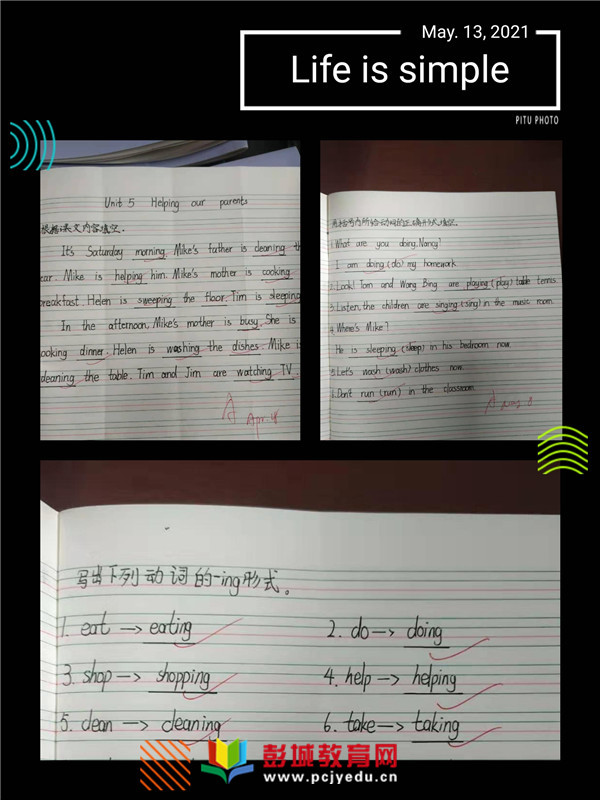 May. 13, 2021
Life is simple
PITU PHOTO
Unit 5 Helping our parents
根据课文内容填空.
It's Saturday morning. Mike's father is cleaning th
car. Mike is helping him. Mike's mother is cooking
breakfast. Helen is sweeping the floor. Tim is sleeping
In the afternoon, Mike's mother is busy. She is
ooking dinner. Helen is washing the dishes. Mike is
cleaning the table. Tim and Jim are watching TV.
A
Apr. 8
用括号内所给动词的正确形式填空.
1. What are you doing, Nancy?
I am doing (do) my homework
2. Look! Tom and Wang Bing are playing (play) table tennis.
3. Listen, the children are singing (sing) in the music room.
4. Where's Mike?
He is sleeping (sleep) in his bedroom now.
5. Let's wash (wash) clothes now.
6. Don't run (run) in the classroom.
A
写出下列动词的-ing形式。
1. eat → eating 2. do → doing
3. shop → shopping 4. help → helping
5. clean → cleaning 6. take → taking
彭城教育网
www.pcjyedu.cn